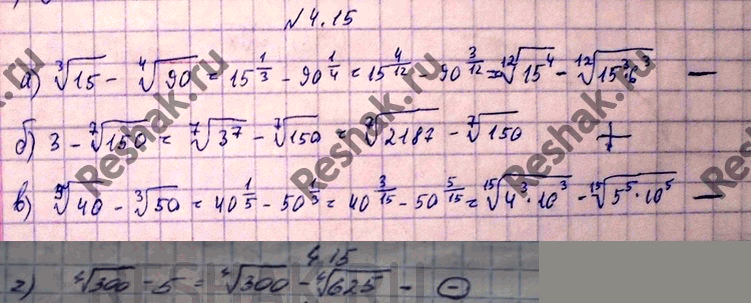 №4.15
а) ∛15 - ∜90 = 15^(1/3) - 90^(1/4) = 15^(4/12) - 90^(3/12) = ¹²√(15⁴) - ¹²√(15³·6³) —
б) 3 - ⁷√150 = ⁷√(3⁷) - ⁷√150 = ⁷√2187 - ⁷√150 +
в) ⁵√40 - ∛50 = 40^(1/5) - 50^(1/3) = 40^(3/15) - 50^(5/15) = ¹⁵√(4³·10³) - ¹⁵√(5⁵·10⁵) —
4.15
г) ∜300 - 5 = ∜300 - ∜625 - ⊖
Reshak.ru
Reshak.ru
Reshak.ru